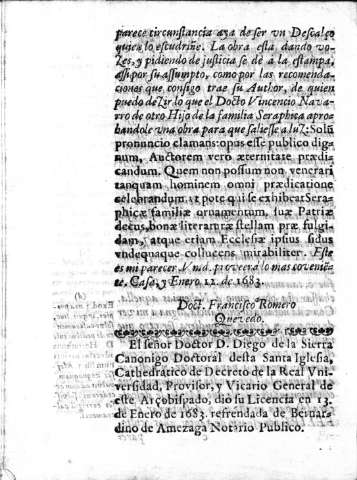 parece circunstancia aya de ser vn Descalço
quien lo escudriñe. La obra està dando vo-
zes, y pidiendo de justicia se dè a la estampa,
assi por su assumpto, como por las recomenda-
ciones que consigo trae su Author, de quien
puedo dezir lo que el Docto Vincencio Nava-
rro de otro Hijo de la familia Seraphica apro-
bandole vna obra para que saliesse a luz: Solũ
pronuncio clamans: opus esse publico dig-
num, Auctorem verò æternitate prædi-
candum. Quem non possum non venerari
tanquam hominem omni prædicatione
celebrandum. vt pote qui se exhibeat Sera-
phicæ familiæ ornamentum, suæ Patriæ
decus, bonæ literaturæ stellam præ fulgi-
dam, atque etiam Ecclesiæ ipsius sidus
vndequaque collucens mirabiliter. Este
es mi parecer. V. md. proveerà lo mas conveniẽ-
te. Casa, y Enero. 12. de 1683.
Doct. Francisco Romero
Quevedo.
El señor Doctor D. Diego de la Sierra
Canonigo Doctoral desta Santa Iglesia,
Cathedratico de Decreto de la Real Vni-
versidad, Provisor, y Vicario General de
este Arçobispado, diò su Licencia en 13.
de Enero de 1683. refrendada de Bernar-
dino de Amezaga Notario Publico.